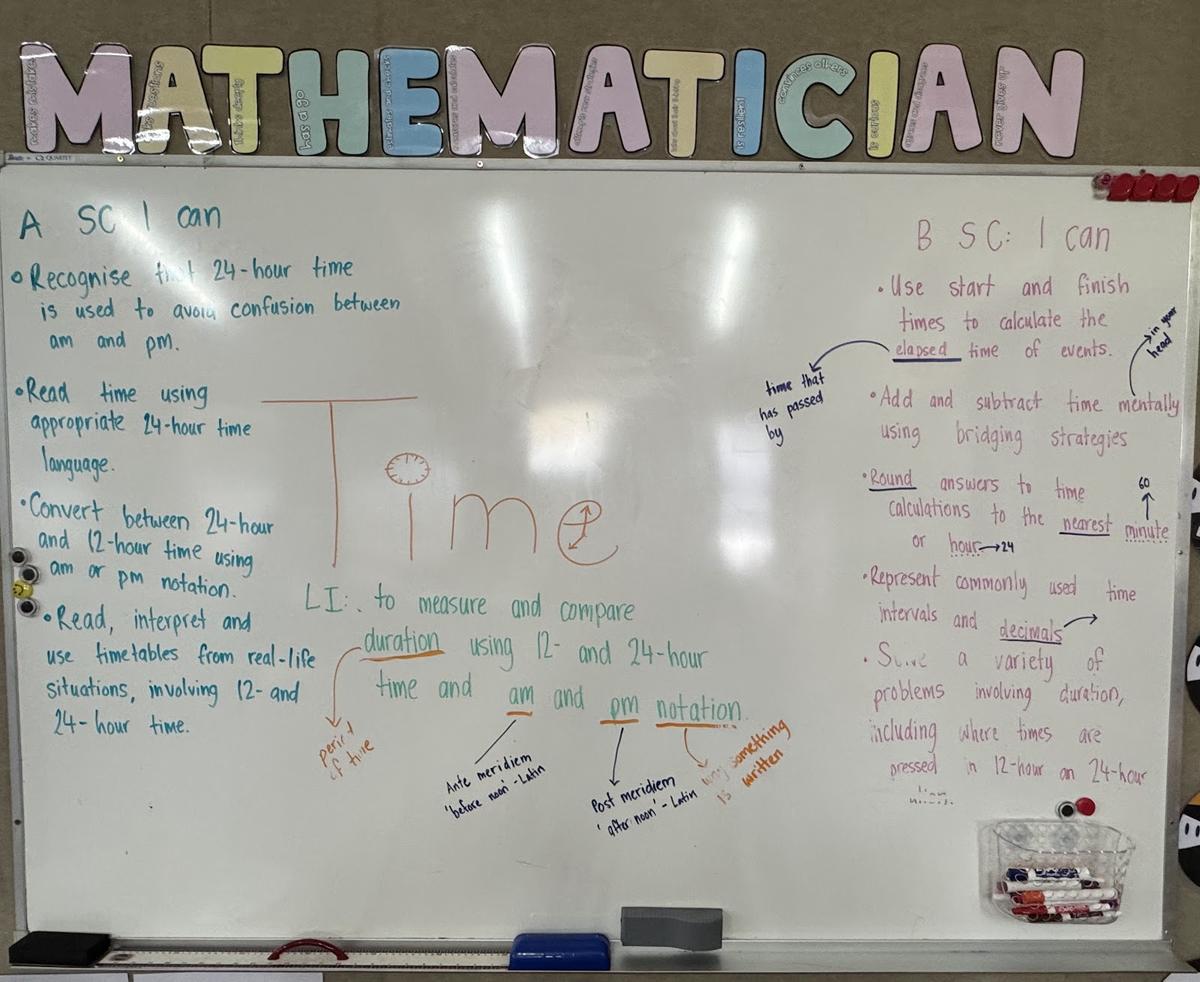 MATHEMATICIAN
makes mistakes
thinks clearly
has a go
is resilient
convinces others
is curious
never gives up
QUARTET
A SC I can
• Recognise that 24-hour time
is used to avoid confusion between
am and pm.
• Read time using
appropriate 24-hour time
language.
• Convert between 24-hour
and 12-hour time using
am or pm notation.
• Read, interpret and
use timetables from real-life
situations, involving 12- and
24-hour time.
Time
LI: to measure and compare
duration using 12- and 24-hour
time and am and pm notation.
period
of time
Ante meridiem
'before noon' - Latin
Post meridiem
'after noon' - Latin
way something
is written
B SC: I can
• Use start and finish
times to calculate the
elapsed time of events.
time that
has passed
by
in your
head
• Add and subtract time mentally
using bridging strategies
• Round answers to time
calculations to the nearest minute
60
or hour → 24
• Represent commonly used time
intervals and decimals
• Solve a variety of
problems involving duration,
including where times are
pressed in 12-hour an 24-hour